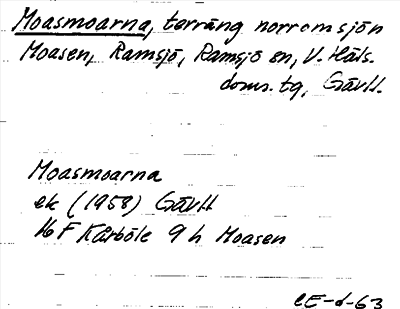 Moasmoarna, terräng norr om sjön
Moasen, Ramsjö, Ramsjö sn, V. Häls.
doms. tg, Gävll.
Moasmoarna
ek (1958) Gävll
16 F Kårböle 9 h Moasen
CE-d-63